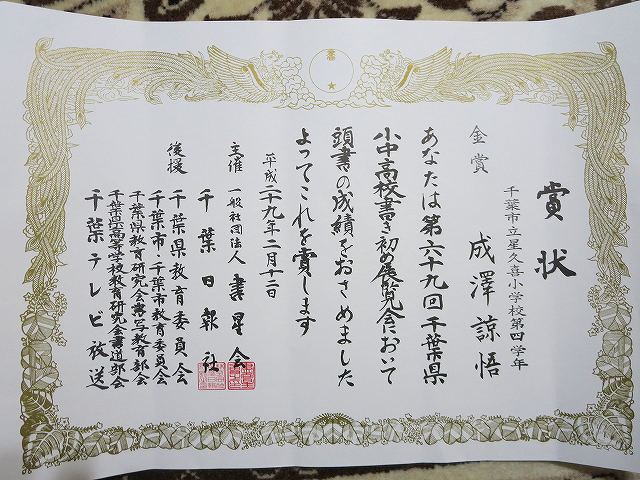 賞状
千葉市立星久喜小学校第四学年
金賞
成澤諒悟
あなたは第六十九回千葉県
小中高校書き初め展覧会において
頭書の成績をおさめました
よってこれを賞します
平成二十九年二月十二日
主催
一般社団法人 書星会
千葉日報社
後援
千葉県教育委員会
千葉市・千葉市教育委員会
千葉県教育研究会書写教育部会
千葉県高等学校教育研究会書道部会
千葉テレビ放送